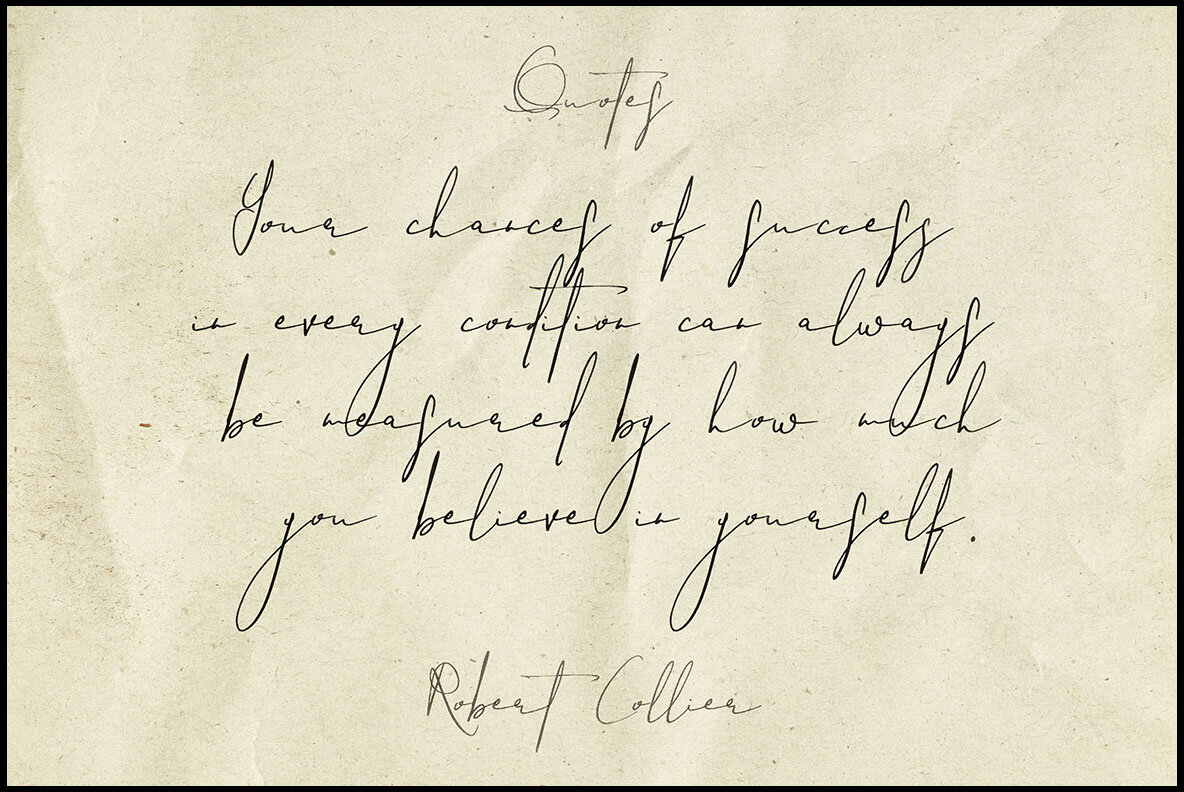 Quotes
Your chances of success
in every condition can always
be measured by how much
you believe in yourself.
Robert Collier